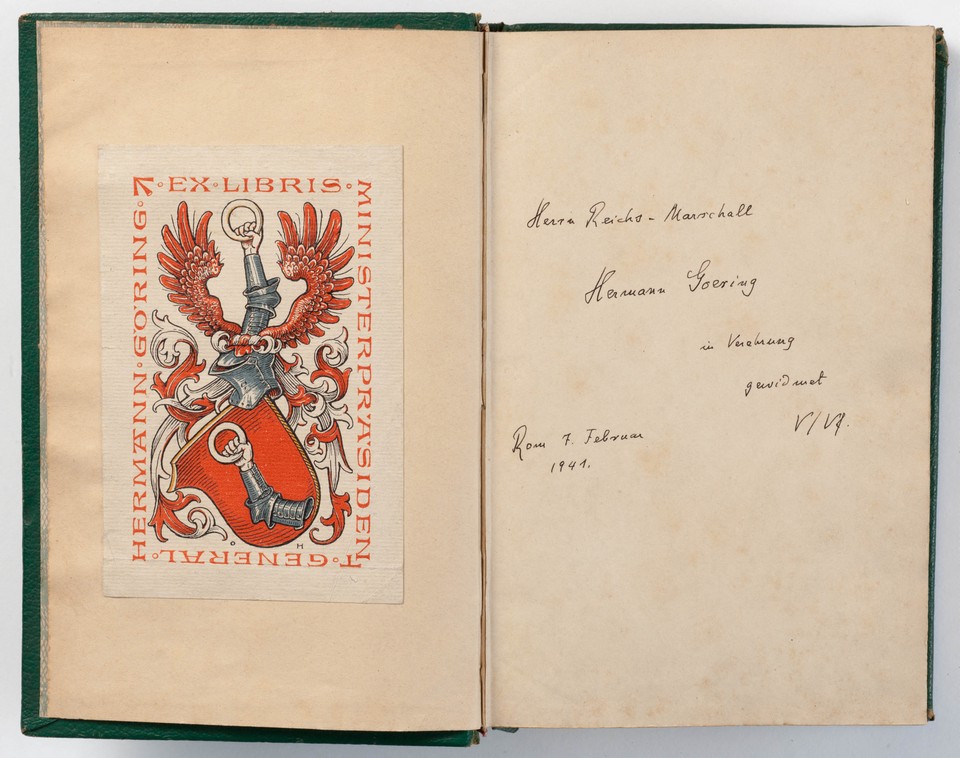 ·EX·LIBRIS·
MINISTERPRÄSIDEN
T·GENERAL·
HERMANN·GÖRING·
O H
Herrn Reichs-Marschall
Hermann Goering
in Verehrung
gewidmet
Rom 7. Februar
1941.